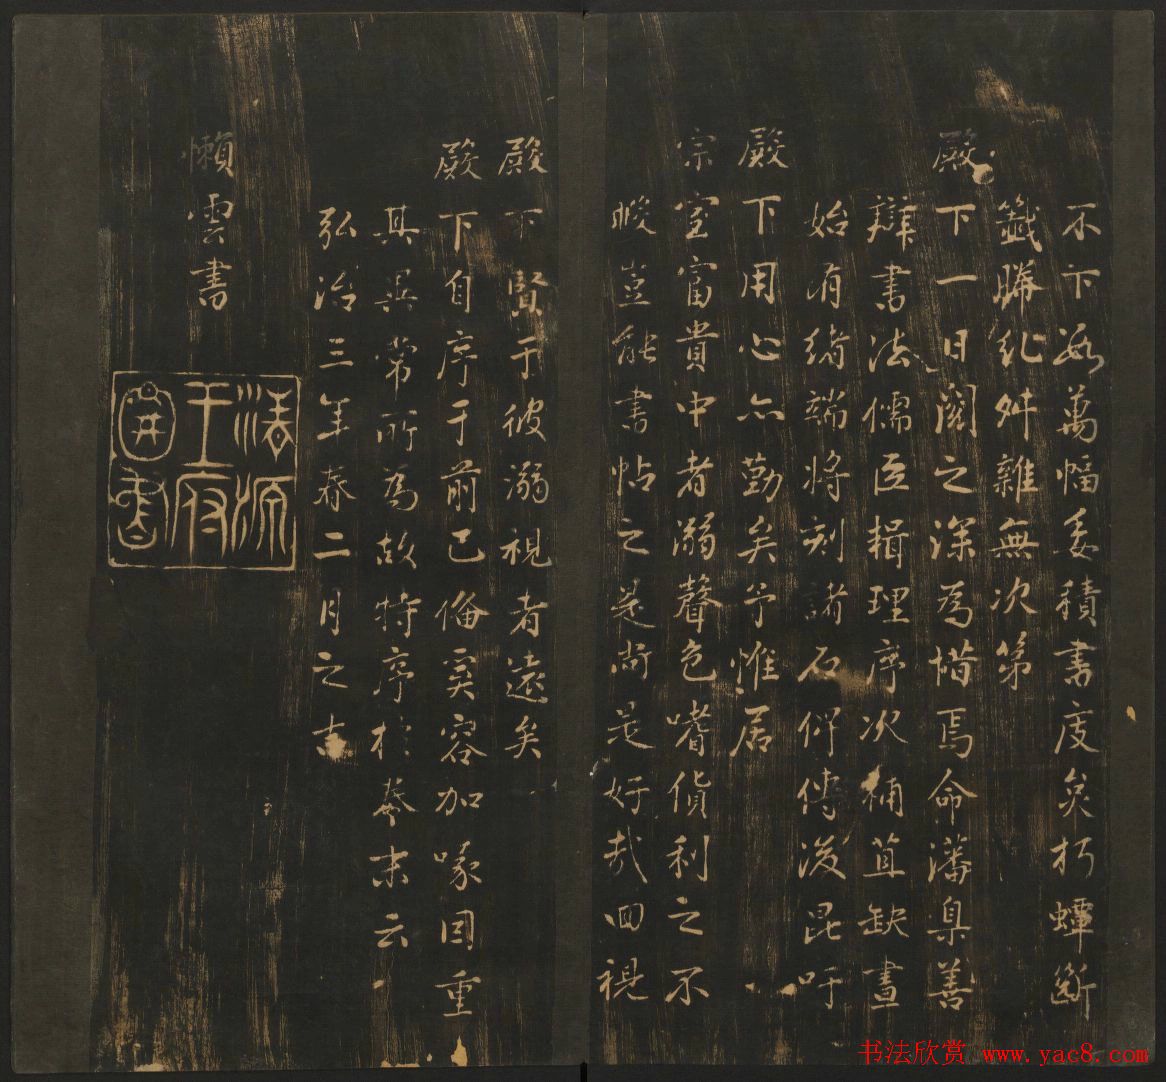 不下數萬幅委積書庋矣朽蟫斷
籤勝紀舛雜無次第
殿下一日閱之深為惜焉命藩臬善
辯書法儒臣揖理序次補苴缺畫
始有緒端將刻諸石俾傳後昆吁
殿下用心亦勤矣予惟居
宗室富貴中者溺聲色嗜貨利之不
暇豈能書帖之是尚是好哉回視
殿下賢于彼溺視者遠矣
殿下自序于前已備奚容加喙因重
其異常所為故特序於卷末云
弘治三年春二月之吉
懶雲書
王府
圖書
书法欣赏 www.yac8.com